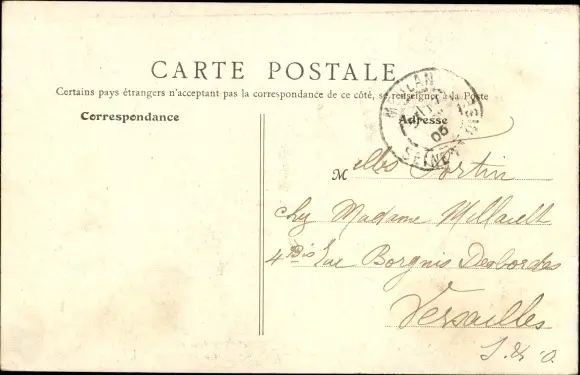 CARTE POSTALE
Certains pays étrangers n'acceptant pas la correspondance de ce côté, se renseigner à la Poste
Correspondance
Adresse
MEULAN
06
SEINE
OISE
Melles Fortin
chez Madame Millault
4 Bis Rue Borgnis Desbordes
Versailles
S. & O.